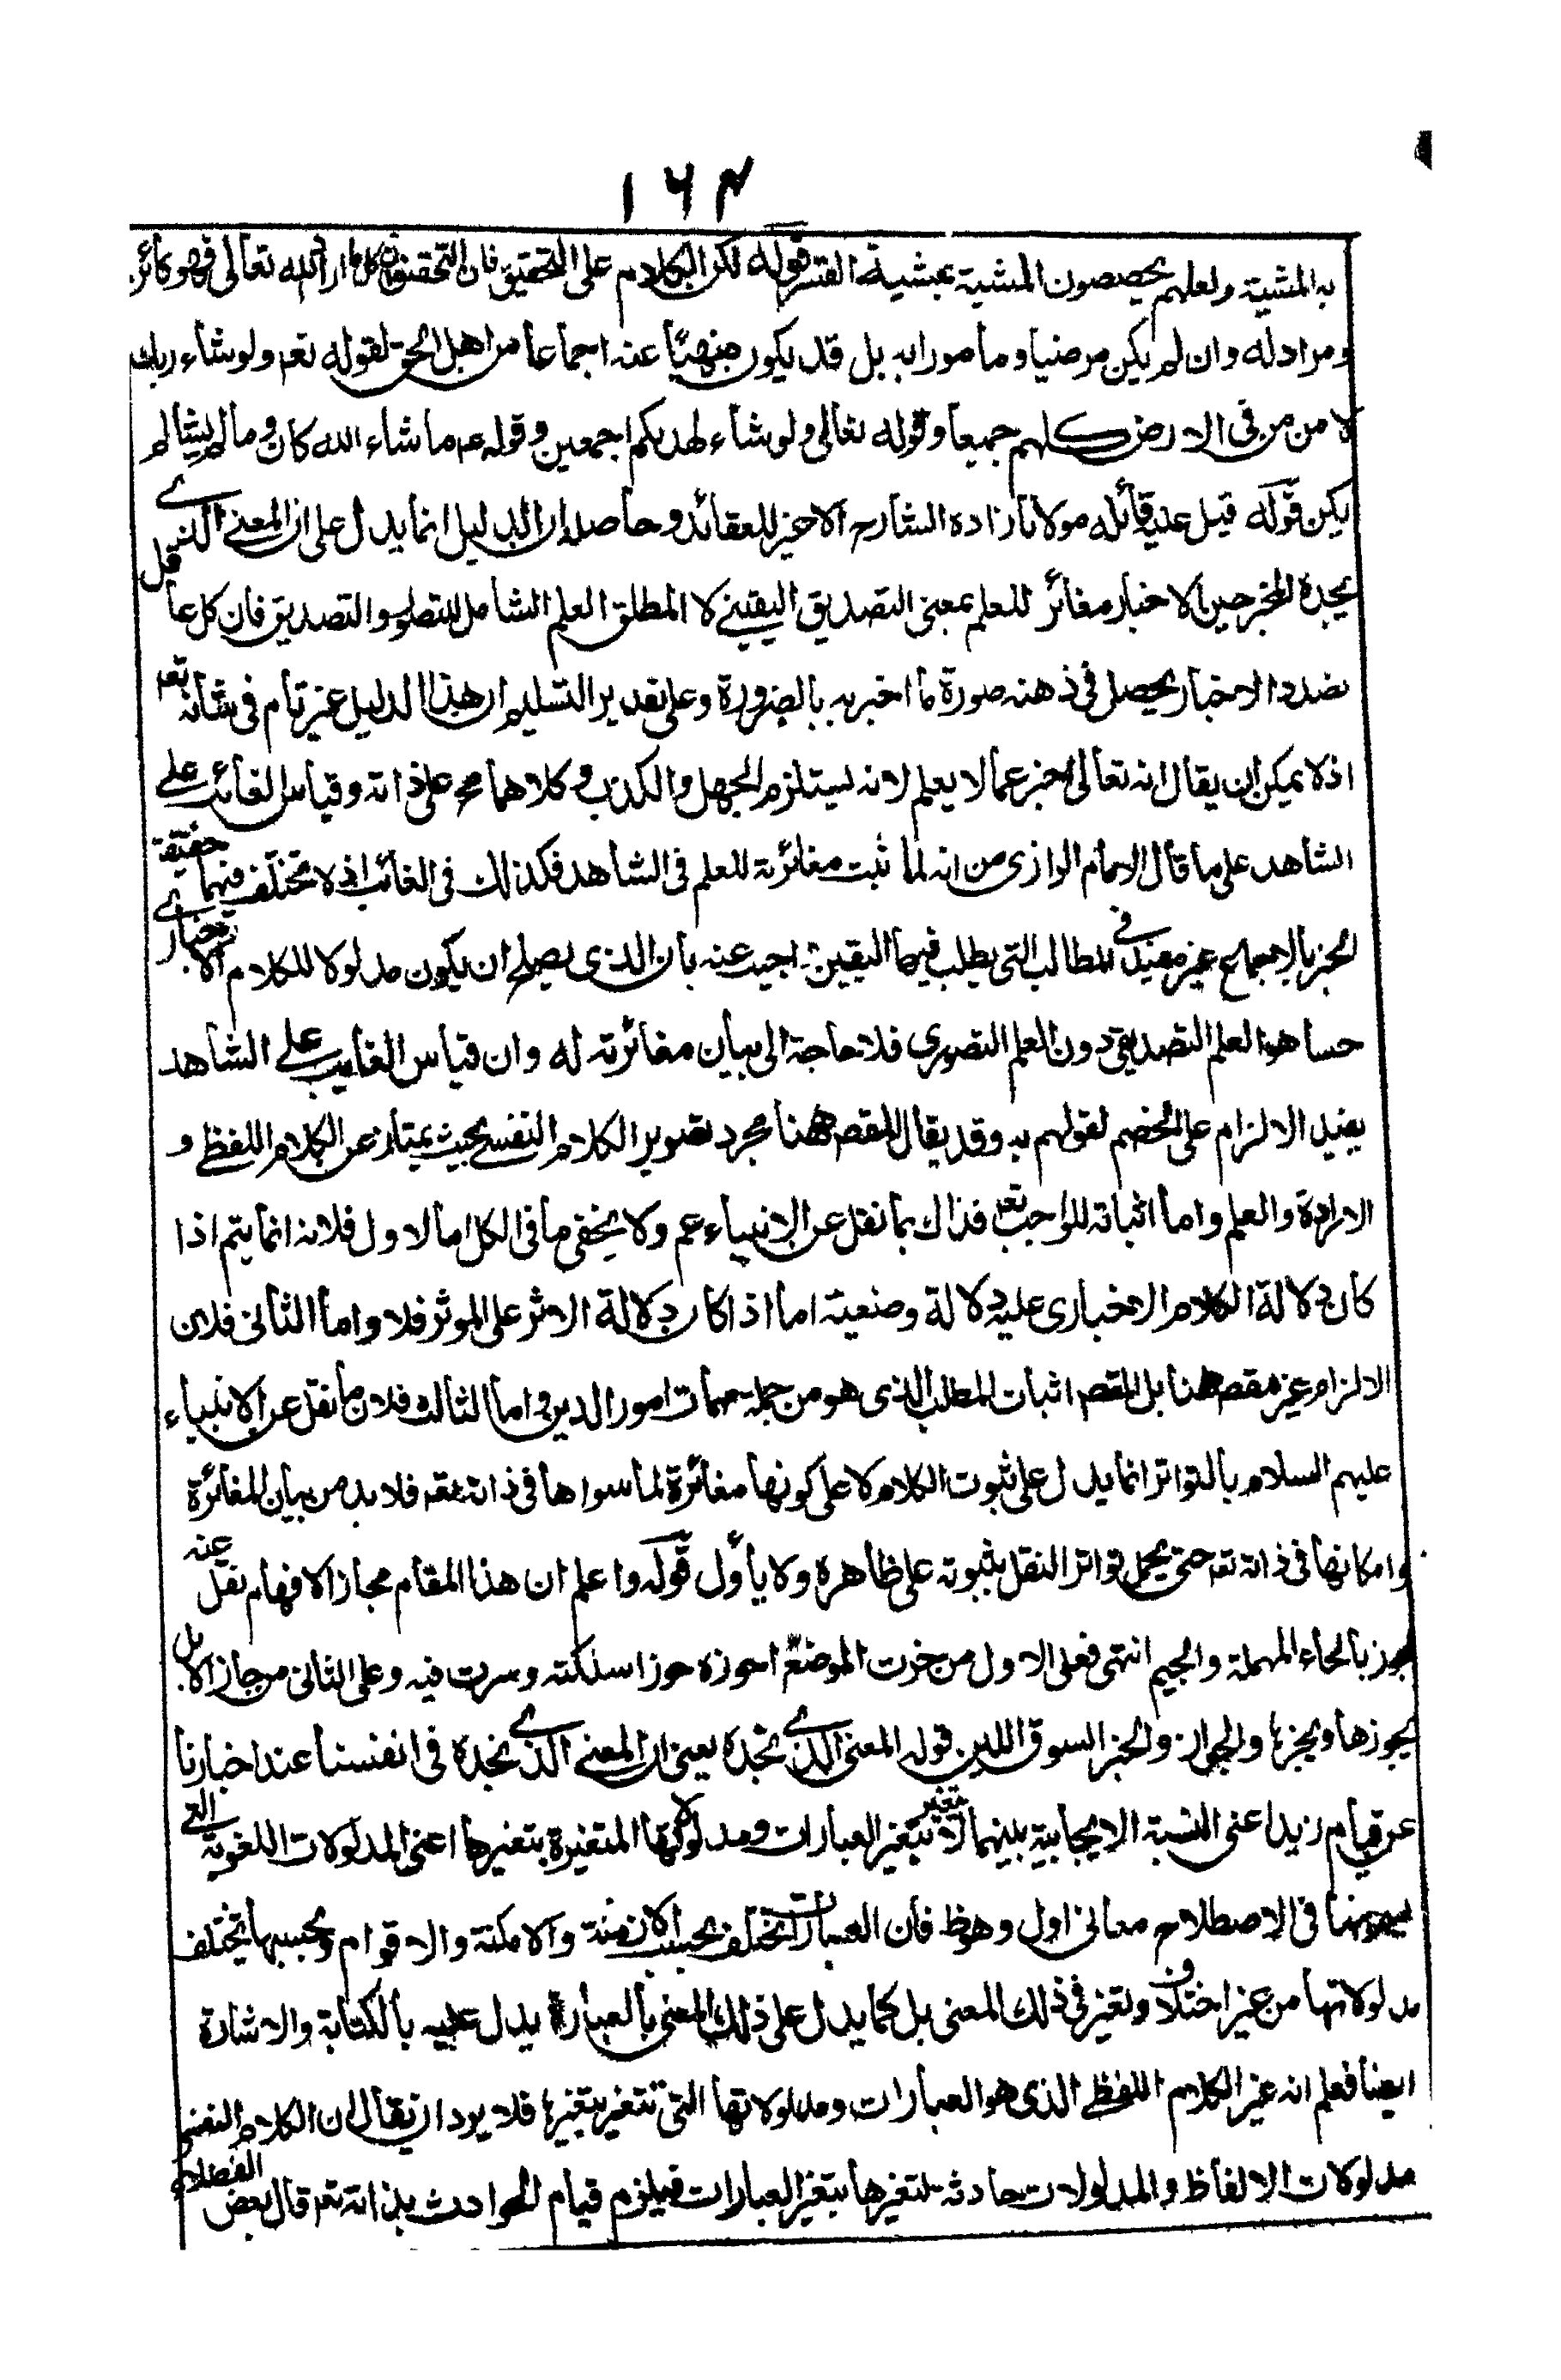 ١٦٤
به المشية ولعلهم يخصصون المشية بمشية القسر قوله لكن الكلام على التحقيق فان التحقيق ان كل ما اراد الله تعالى فهو كائن
ومراد له وان لم يكن مرضيا ومأمورا به بل قد يكون منهيا عنه اجماعا من اهل الحق لقوله تعم ولو شاء ربك
لامن من فى الارض كلهم جميعا وقوله تعالى ولو شاء لهدىكم اجمعين وقوله عم ما شاء الله كان وما لم يشأ لم
يكن قوله قيل عليه قائله مولانا زاده الشارح الاخير للعقائد وحاصله ان الدليل انما يدل على ان المعنى الذى
يجده المخبر حين الاخبار مغائر للعلم بمعنى التصديق اليقينى لا المطلق العلم الشامل للتصور والتصديق فان كل عاقل
تصدد الاخبار يحصل فى ذهنه صورة ما اخبر به بالضرورة وعلى تقدير التسليم ان هذا الدليل غير تام فى شأنه تعم
اذ لا يمكن ان يقال انه تعالى اخبر عما لا يعلم لانه يستلزم الجهل والكذب وكلاهما مح على ذاته وقياس الغائب على
الشاهد على ما قال الامام الرازى من انه لما ثبت مغائرته للعلم فى الشاهد فكذلك فى الغائب اذ لا تختلف فيهما حقيقة
الخبر بالاجماع غير مفيد فى المطالب التى يطلب فيها اليقين اجيب عنه بان الذى يصلح ان يكون مدلولا للكلام الاخبارى
حسا هو العلم التصديقى دون العلم التصورى فلا حاجة الى بيان مغائرته له وان قياس الغايب على الشاهد
يفيد الالزام على الخصم لقولهم به وقد يقال المقصم ههنا مجرد تصوير الكلام النفسى بحيث يمتاز عن الكلام اللفظى و
الارادة والعلم واما اثباته للواجب تعم فذاك بما نقل عن الانبياء عم ولا يخفى ما فى الكل اما الاول فلانه انما يتم اذا
كان دلالة الكلام الاخبارى عليه دلالة وضعية اما اذا كان دلالة الاثر على الموثر فلا واما الثانى فلان
الالزام غير مقصم ههنا بل المقصم اثبات المطلب الذى هو من جملة مهمات امور الدين واما الثالث فلان ما نقل عن الانبياء
عليهم السلام بالتواتر انما يدل على ثبوت الكلام لا على كونها مغائرة لما سواها فى ذاته تعم فلا بد من بيان المغائرة
وامكانها فى ذاته تعم حتى يحمل تواتر النقل بثبوته على ظاهره ولا يأول قوله واعلم ان هذا المقام مجاز الافهام نقل عنه
يجوز بالحاء المهملة والجيم انتهى فعلى الاول من حزت الموضع احوزه حوزا سلكته وسرت فيه وعلى الثانى من جاز الابل
يجوزها ويجزيها والجواز والحيز السوق اللين قوله المعنى الذى نجده يعنى ان المعنى الذى نجده فى انفسنا عند اخبارنا
عن قيام زيد اعنى النسبة الايجابية بينهما لا تتغير بتغير العبارات ومدلولاتها المتغيرة بتغيرها اعنى المدلولات اللغوية التى
يسمونها فى الاصطلاح معانى اول وهو ظ فان العبارات تختلف بحسب الازمنة والامكنة والاقوام وبحسبها تختلف
مدلولاتها من غير اختلاف وتغير فى ذلك المعنى بل كما يدل على ذلك المعنى بالعبارة يدل عليه بالكتابة والاشارة
ايضا فعلم انه غير الكلام اللفظى الذى هو العبارات ومدلولاتها التى تتغير بتغيرها فلا يرد ان يقال ان الكلام النفسى
مدلولات الالفاظ والمدلولات حادثة لتغيرها بتغير العبارات فيلزم قيام الحوادث بذاته تعم قال بعض الفضلاء